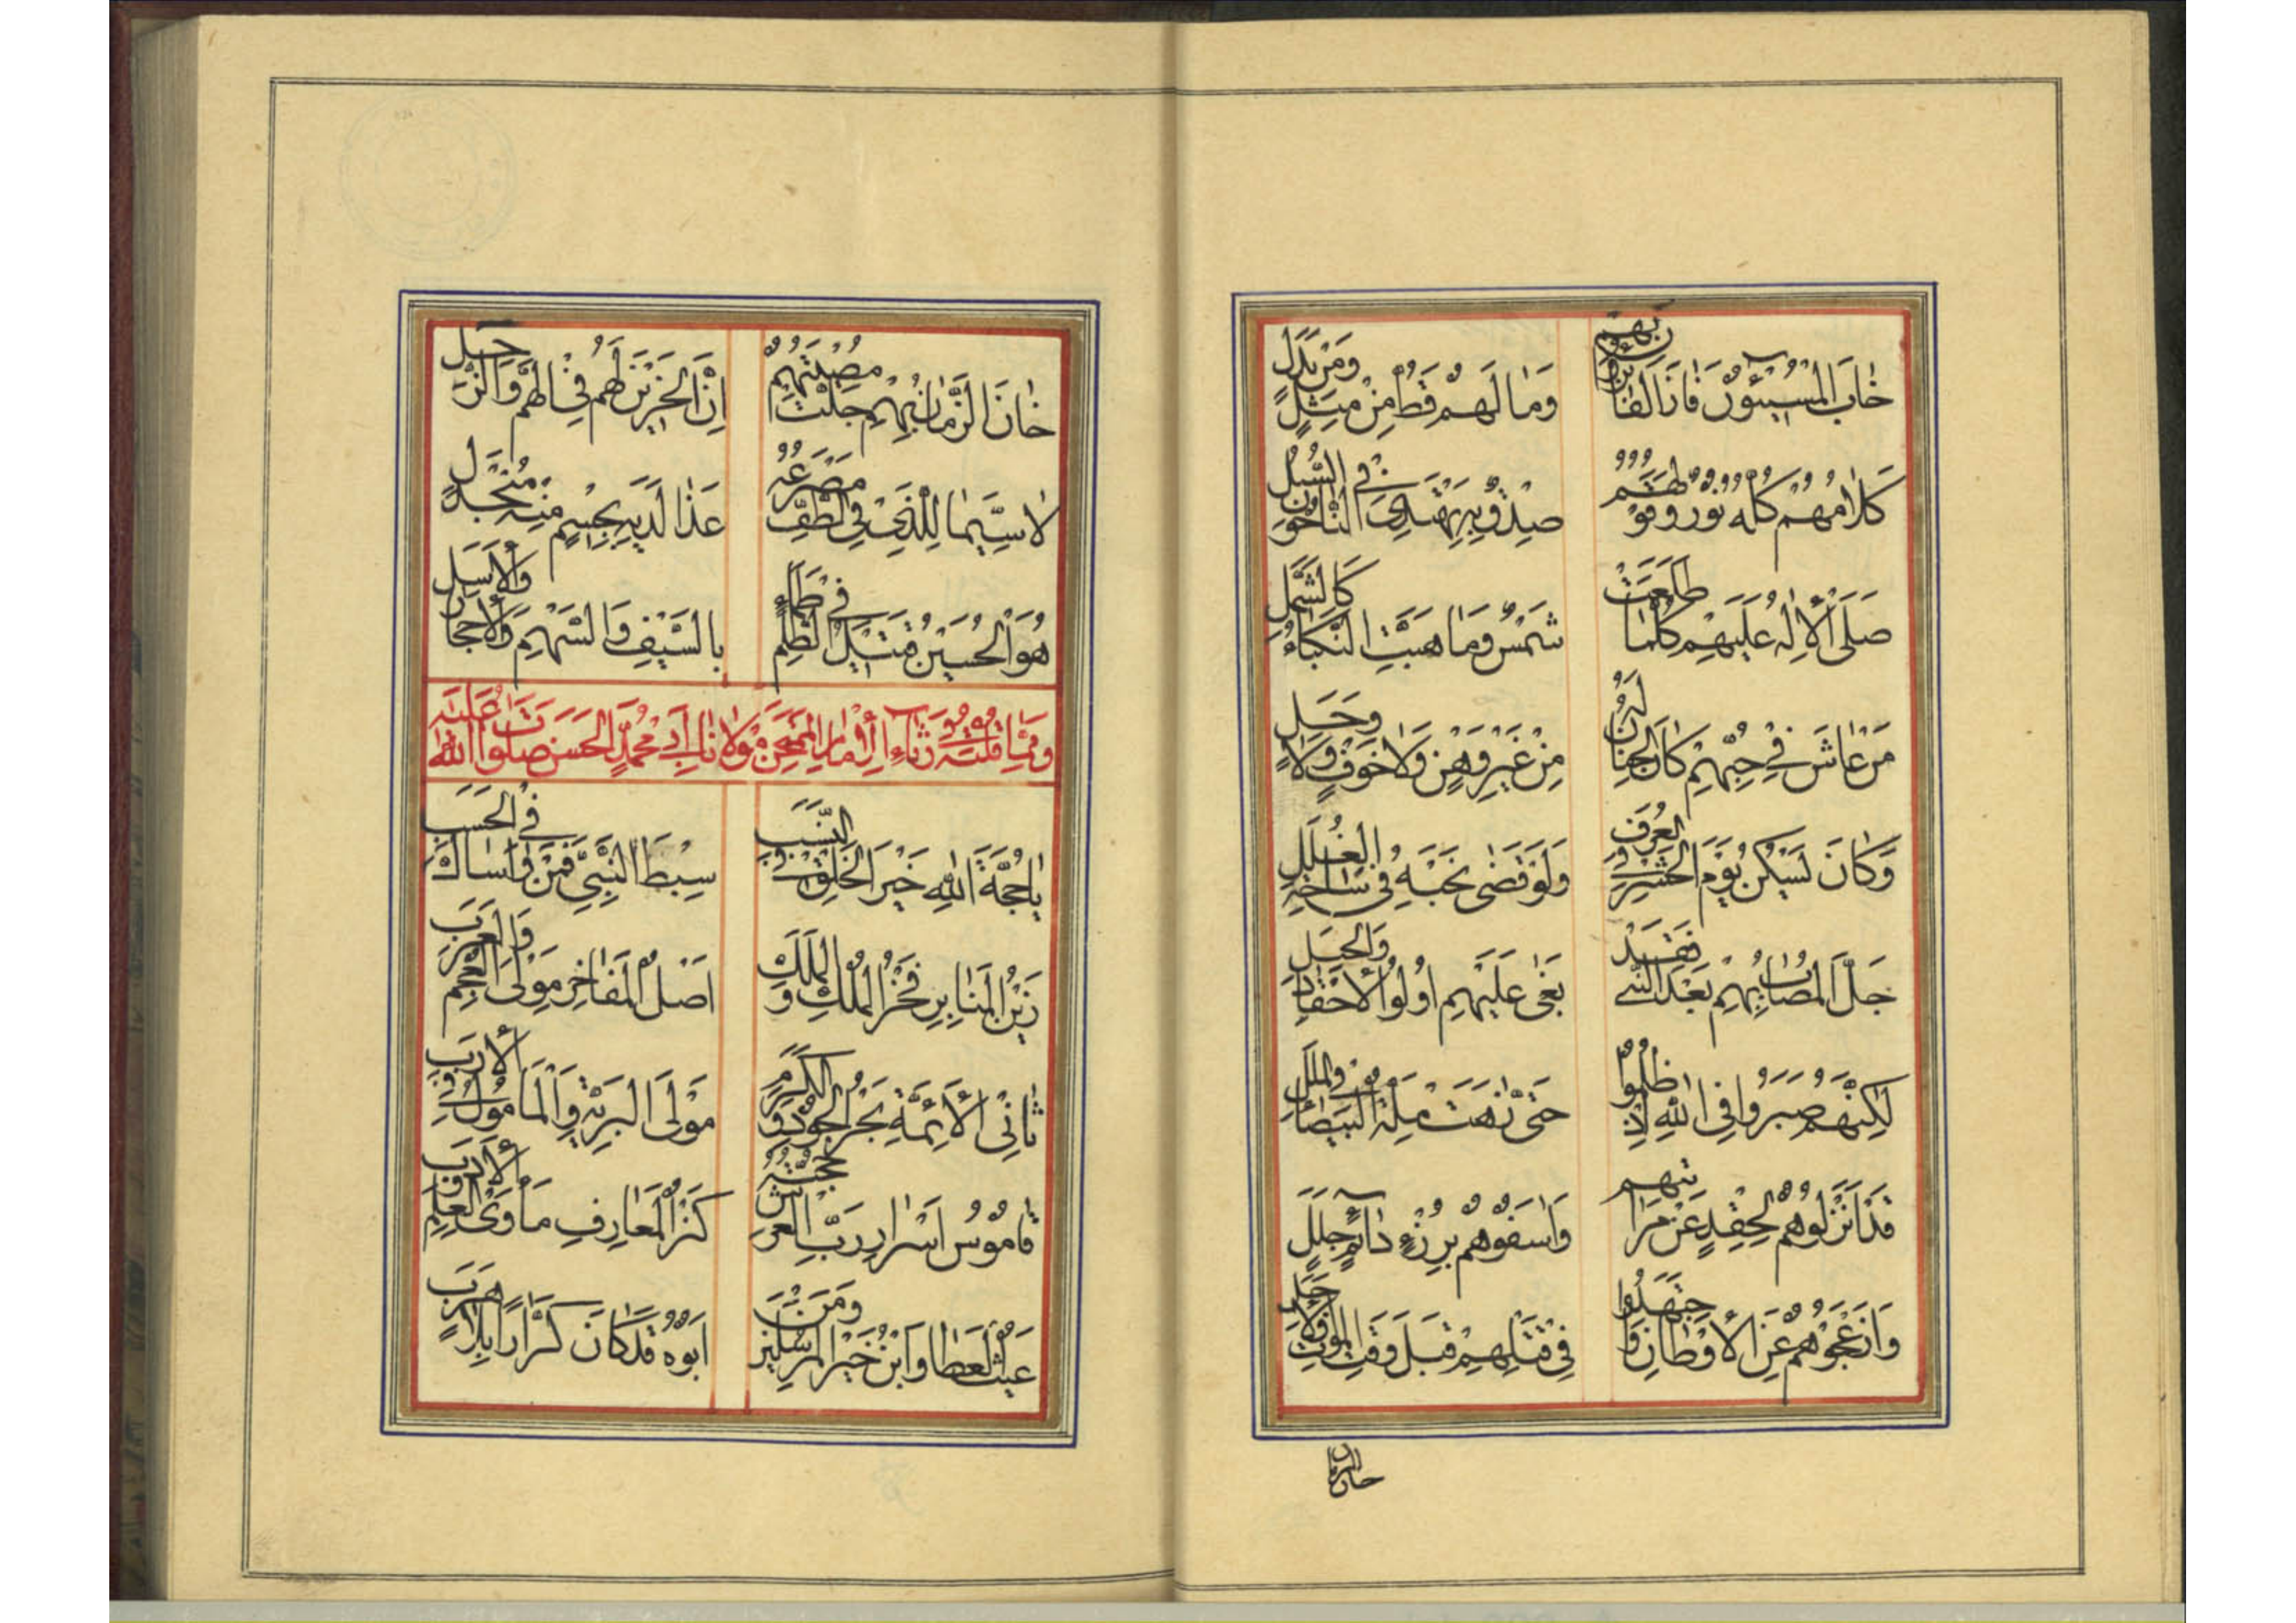 خابَ المُسيئون فازَ الفائزون بهم
وَما لَهم قَطُّ مِن مِثلٍ وَمَن بَدَلٍ
كلامُهم كلُّه نورٌ وقولهم
صِدقٌ بِه يَهتَدي الناحون في السُّبُل
صَلّى الإلهُ عَلَيهم كُلَّما طَلَعَت
شَمسٌ وَما هَبَّتِ النَّكباءُ كالشَّمَل
مَن عاشَ في حِبِّهم كانَ الجِنانُ لَهُ
مِن غَيرِ وَهنٍ وَلا خَوفٍ وَلا وَجَل
وَكانَ يَسكن يَومَ الحشر في الغُرَف
وَلَو قَضى نَحبَه في ساحة الغُلَل
جَلَّ المُصابُ بِهم بَعدَ النَّبي فَقَد
بَغى عَلَيهم أولو الأحقاد وَالحِيَل
لكِنَّهم صَبَروا في الله إذ ظُلِموا
حَتّى زهت ملّة البيضاء في المِلَل
قَد أنزَلوهم لِحِقدٍ عَن مَراتبهم
وَأسَفوهم بِرزءٍ دائمٍ جَلَل
وَأزعَجوهم عَنِ الأوطانِ وَاجتَهَدوا
في قَتلِهم قَبلَ وَقتِ المَوتِ وَالأجَل
خان الزما
خانَ الزَّمانُ بِهم جَلَّت مُصيبَتُهم
إنَّ الخَبيرينَ لَهم في الهمّ والنزل جيل
لا سِيَّما لِلَّذي في الطَّفِّ مَصرَعُه
غَدا لَدَيه بِجِسمٍ مِنه مُنجَدِل
هُوَ الحُسَين قَتيلُ الظُّلمِ في ظَمَاءٍ
بالسَّيفِ وَالسَّهمِ وَالأحجار وَالأسَل
وَمِمّا قُلتُه في رَثاء الإمام المُمتَحَن مَولانا أبي مُحَمَّدٍ الحَسَن صَلَوات الله عَلَيه
يا حُجَّةَ الله خَيرَ الخَلقِ في النَّسَب
سِبطَ النَّبِيِّ فَمَن ساواك في الحَسَب
زَينُ المَنابِرِ فَخرُ المُلكِ وَالمَلَك
أصلُ المَفاخِرِ مَولى العُجمِ وَالعَرَب
ثاني الأئِمَّةِ بَحرُ الجودِ في الكَرَم
مَولى البَرِيَّةِ وَالمَأمول في الأرب
قاموسُ أسرارِ رَبِّ العَرش حُجَّته
كَنزُ المَعارِفِ مَأوى العِلمِ وَالأدَب
غَيثُ العَطا وَابنُ خَيرِ المُرسَلين وَمَن
أبوه قَد كانَ كَرّارا بلا هَرَب